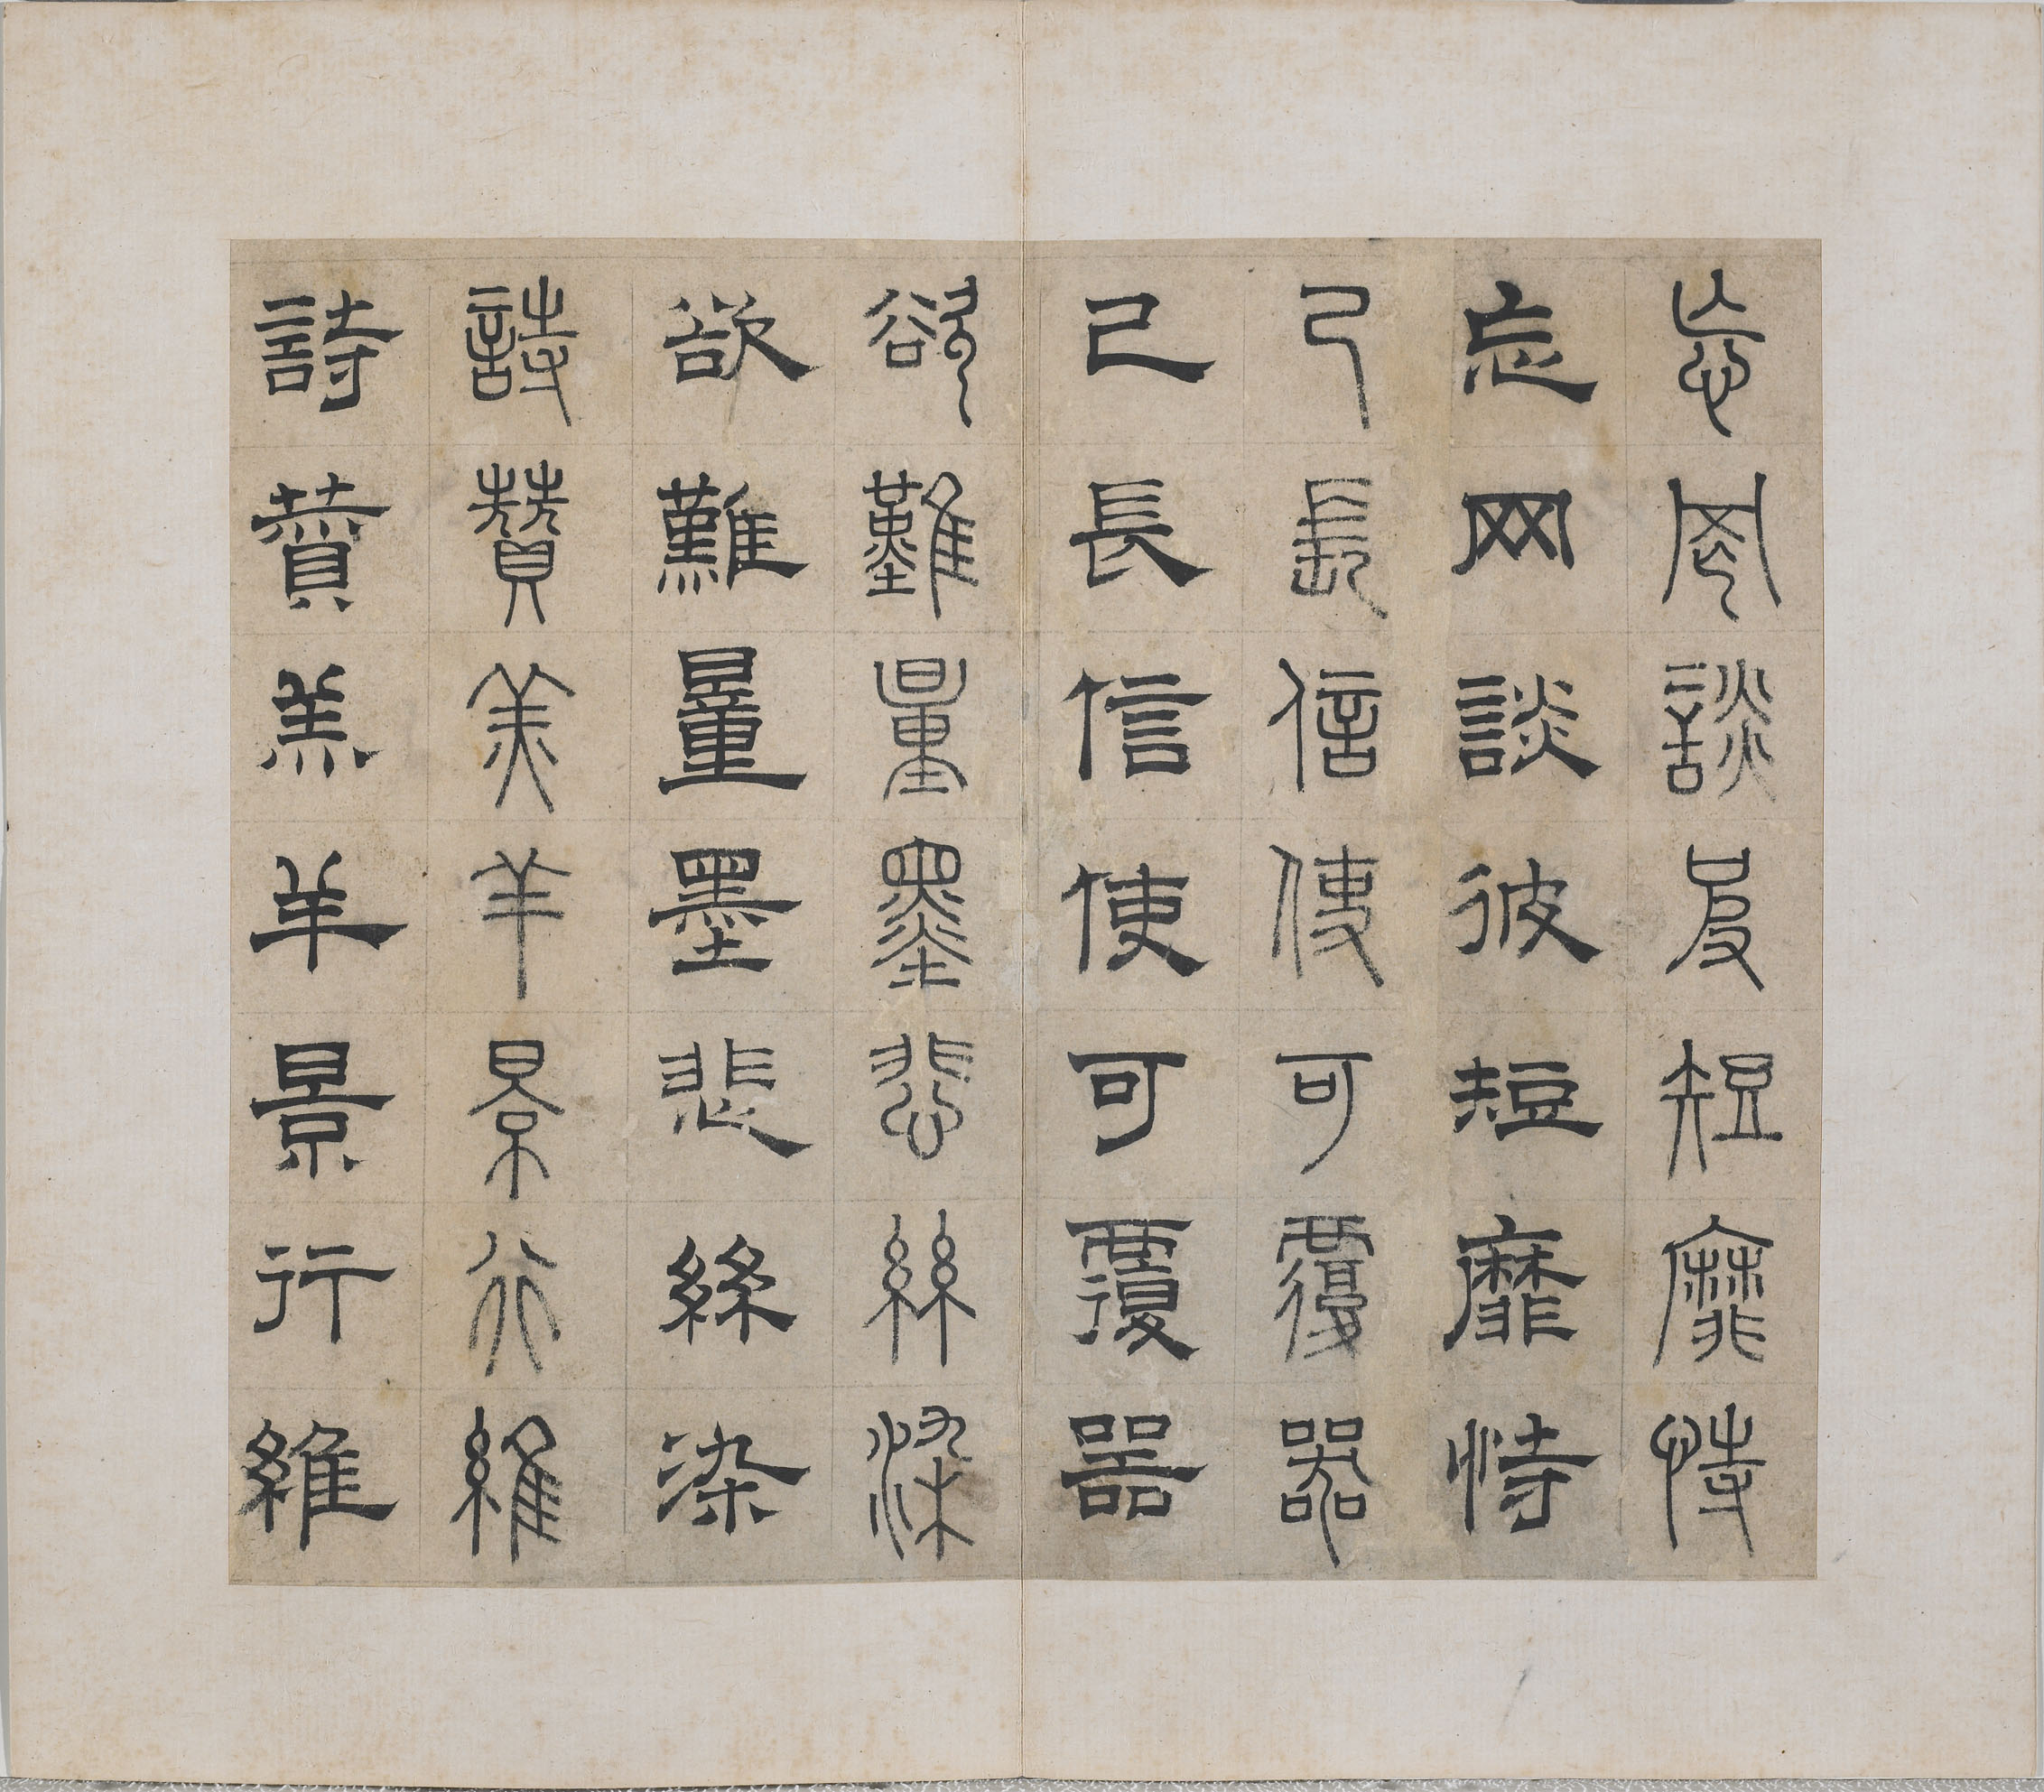 忘罔談彼短靡恃
忘罔談彼短靡恃
己長信使可覆器
己長信使可覆器
欲難量墨悲絲染
欲難量墨悲絲染
詩讚羔羊景行維
詩讚羔羊景行維